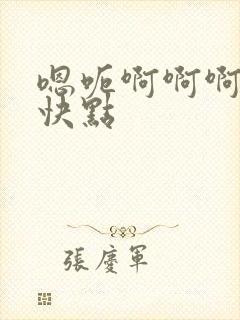 嗯呃啊啊啊
快點
張慶軍